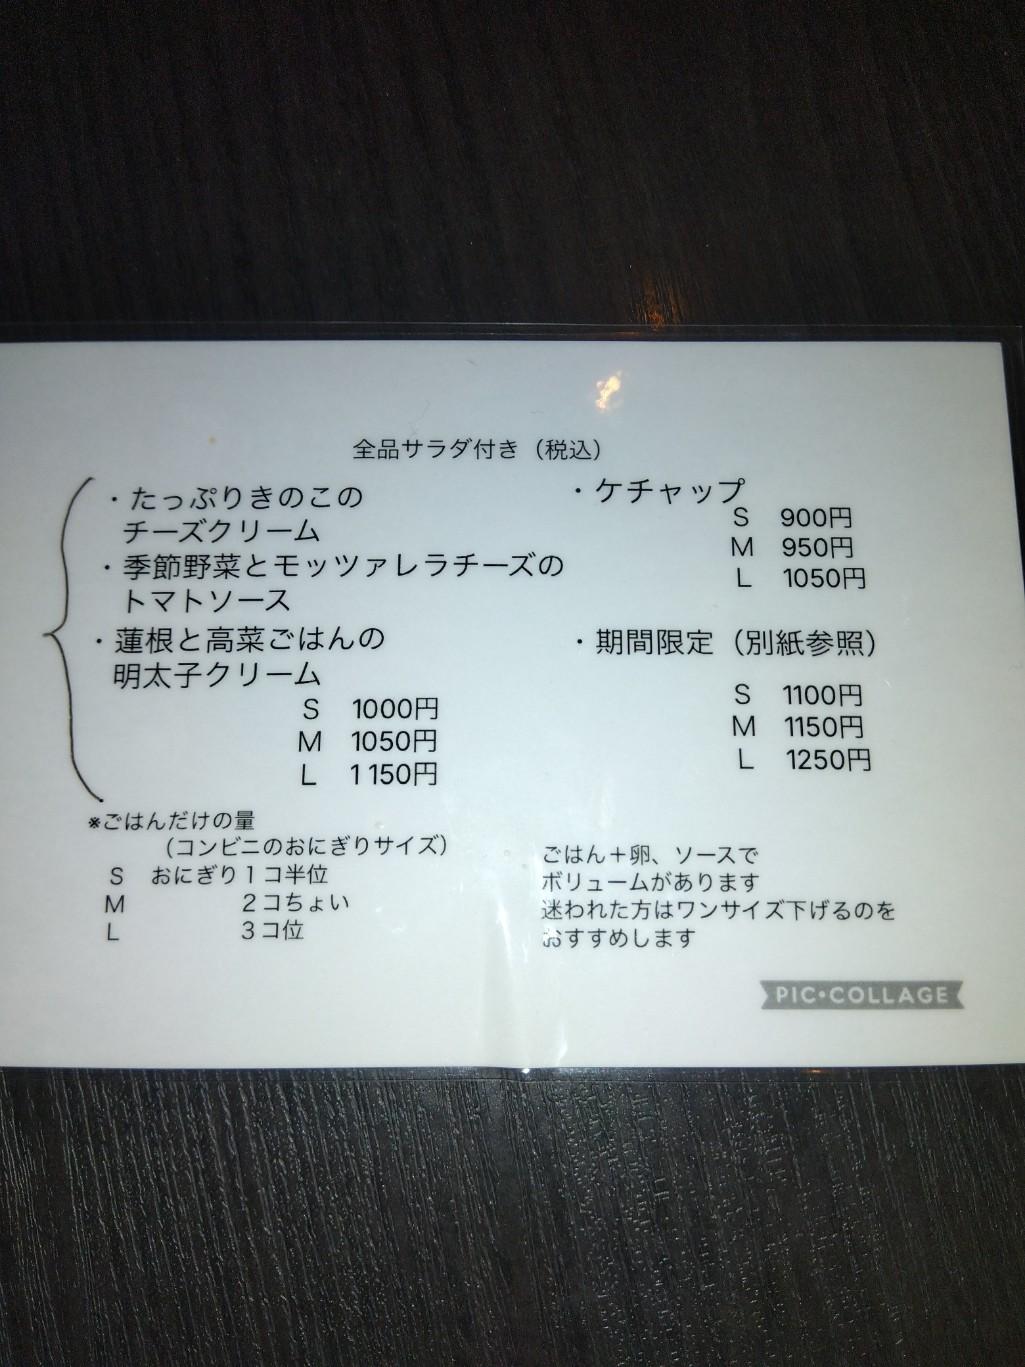 全品サラダ付き（税込）
・たっぷりきのこの
チーズクリーム
・季節野菜とモッツァレラチーズの
トマトソース
・蓮根と高菜ごはんの
明太子クリーム
S 1000円
M 1050円
L 1150円
・ケチャップ
S 900円
M 950円
L 1050円
・期間限定（別紙参照）
S 1100円
M 1150円
L 1250円
※ごはんだけの量
（コンビニのおにぎりサイズ）
S おにぎり1コ半位
M 2コちょい
L 3コ位
ごはん＋卵、ソースで
ボリュームがあります
迷われた方はワンサイズ下げるのを
おすすめします
PIC•COLLAGE